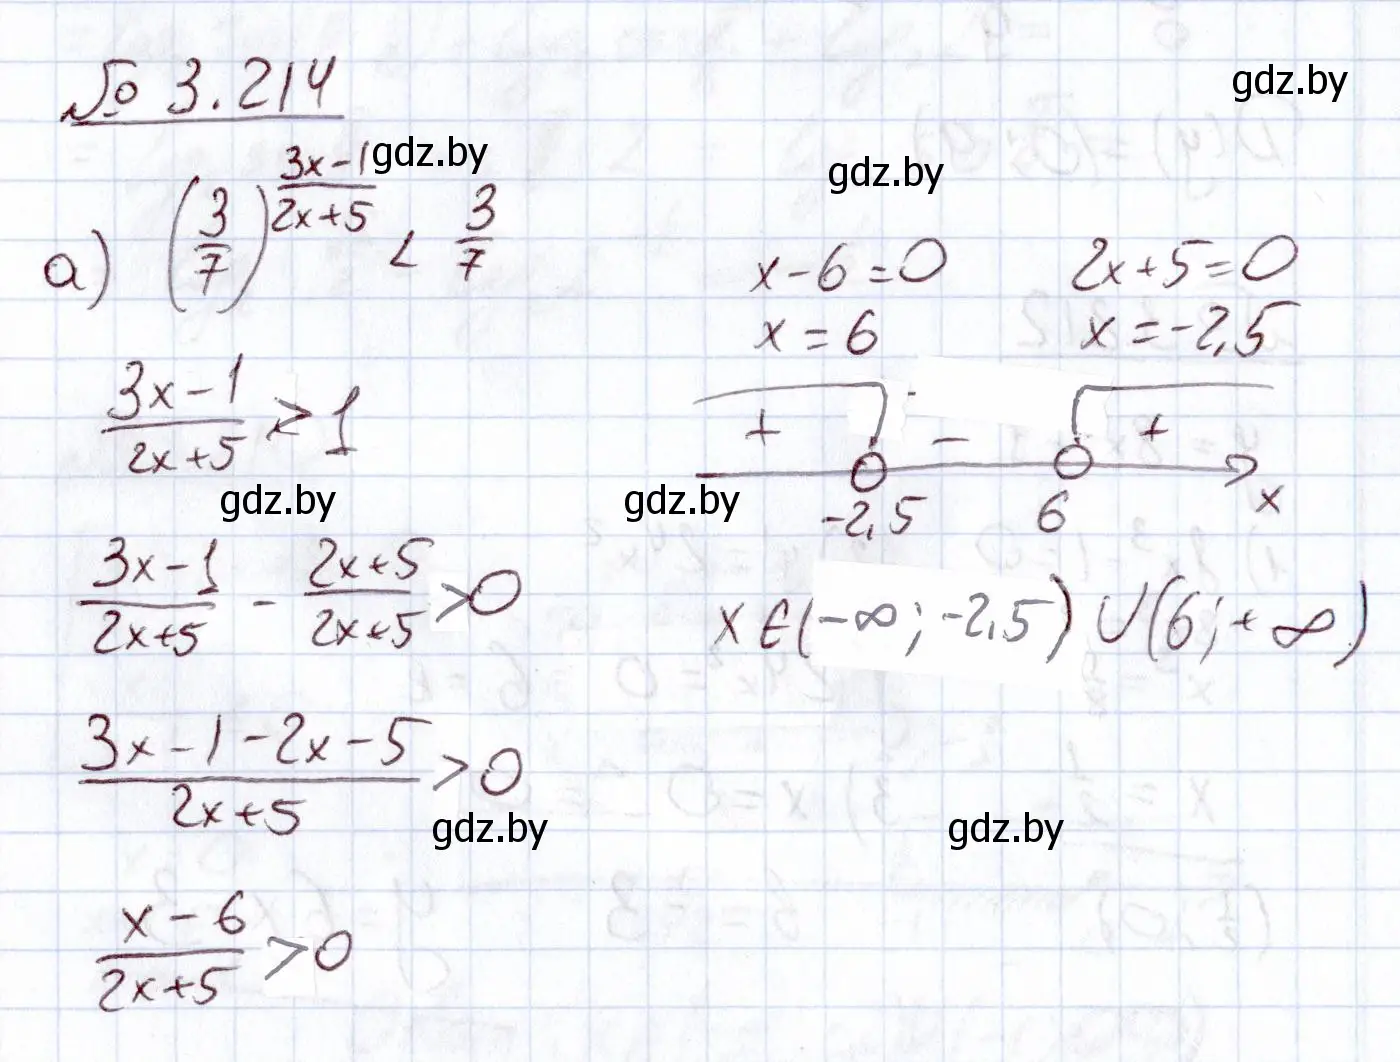 № 3.214
gdz.by
а) (3/7)^((3x-1)/(2x+5)) < 3/7
gdz.by
gdz.by
(3x-1)/(2x+5) > 1
gdz.by
(3x-1)/(2x+5) - (2x+5)/(2x+5) > 0
(3x-1-2x-5)/(2x+5) > 0
gdz.by
(x-6)/(2x+5) > 0
x-6=0 2x+5=0
x=6 x=-2,5
+ - +
-2,5 6 x
gdz.by
x∈(-∞; -2,5) ∪ (6; +∞)
gdz.by